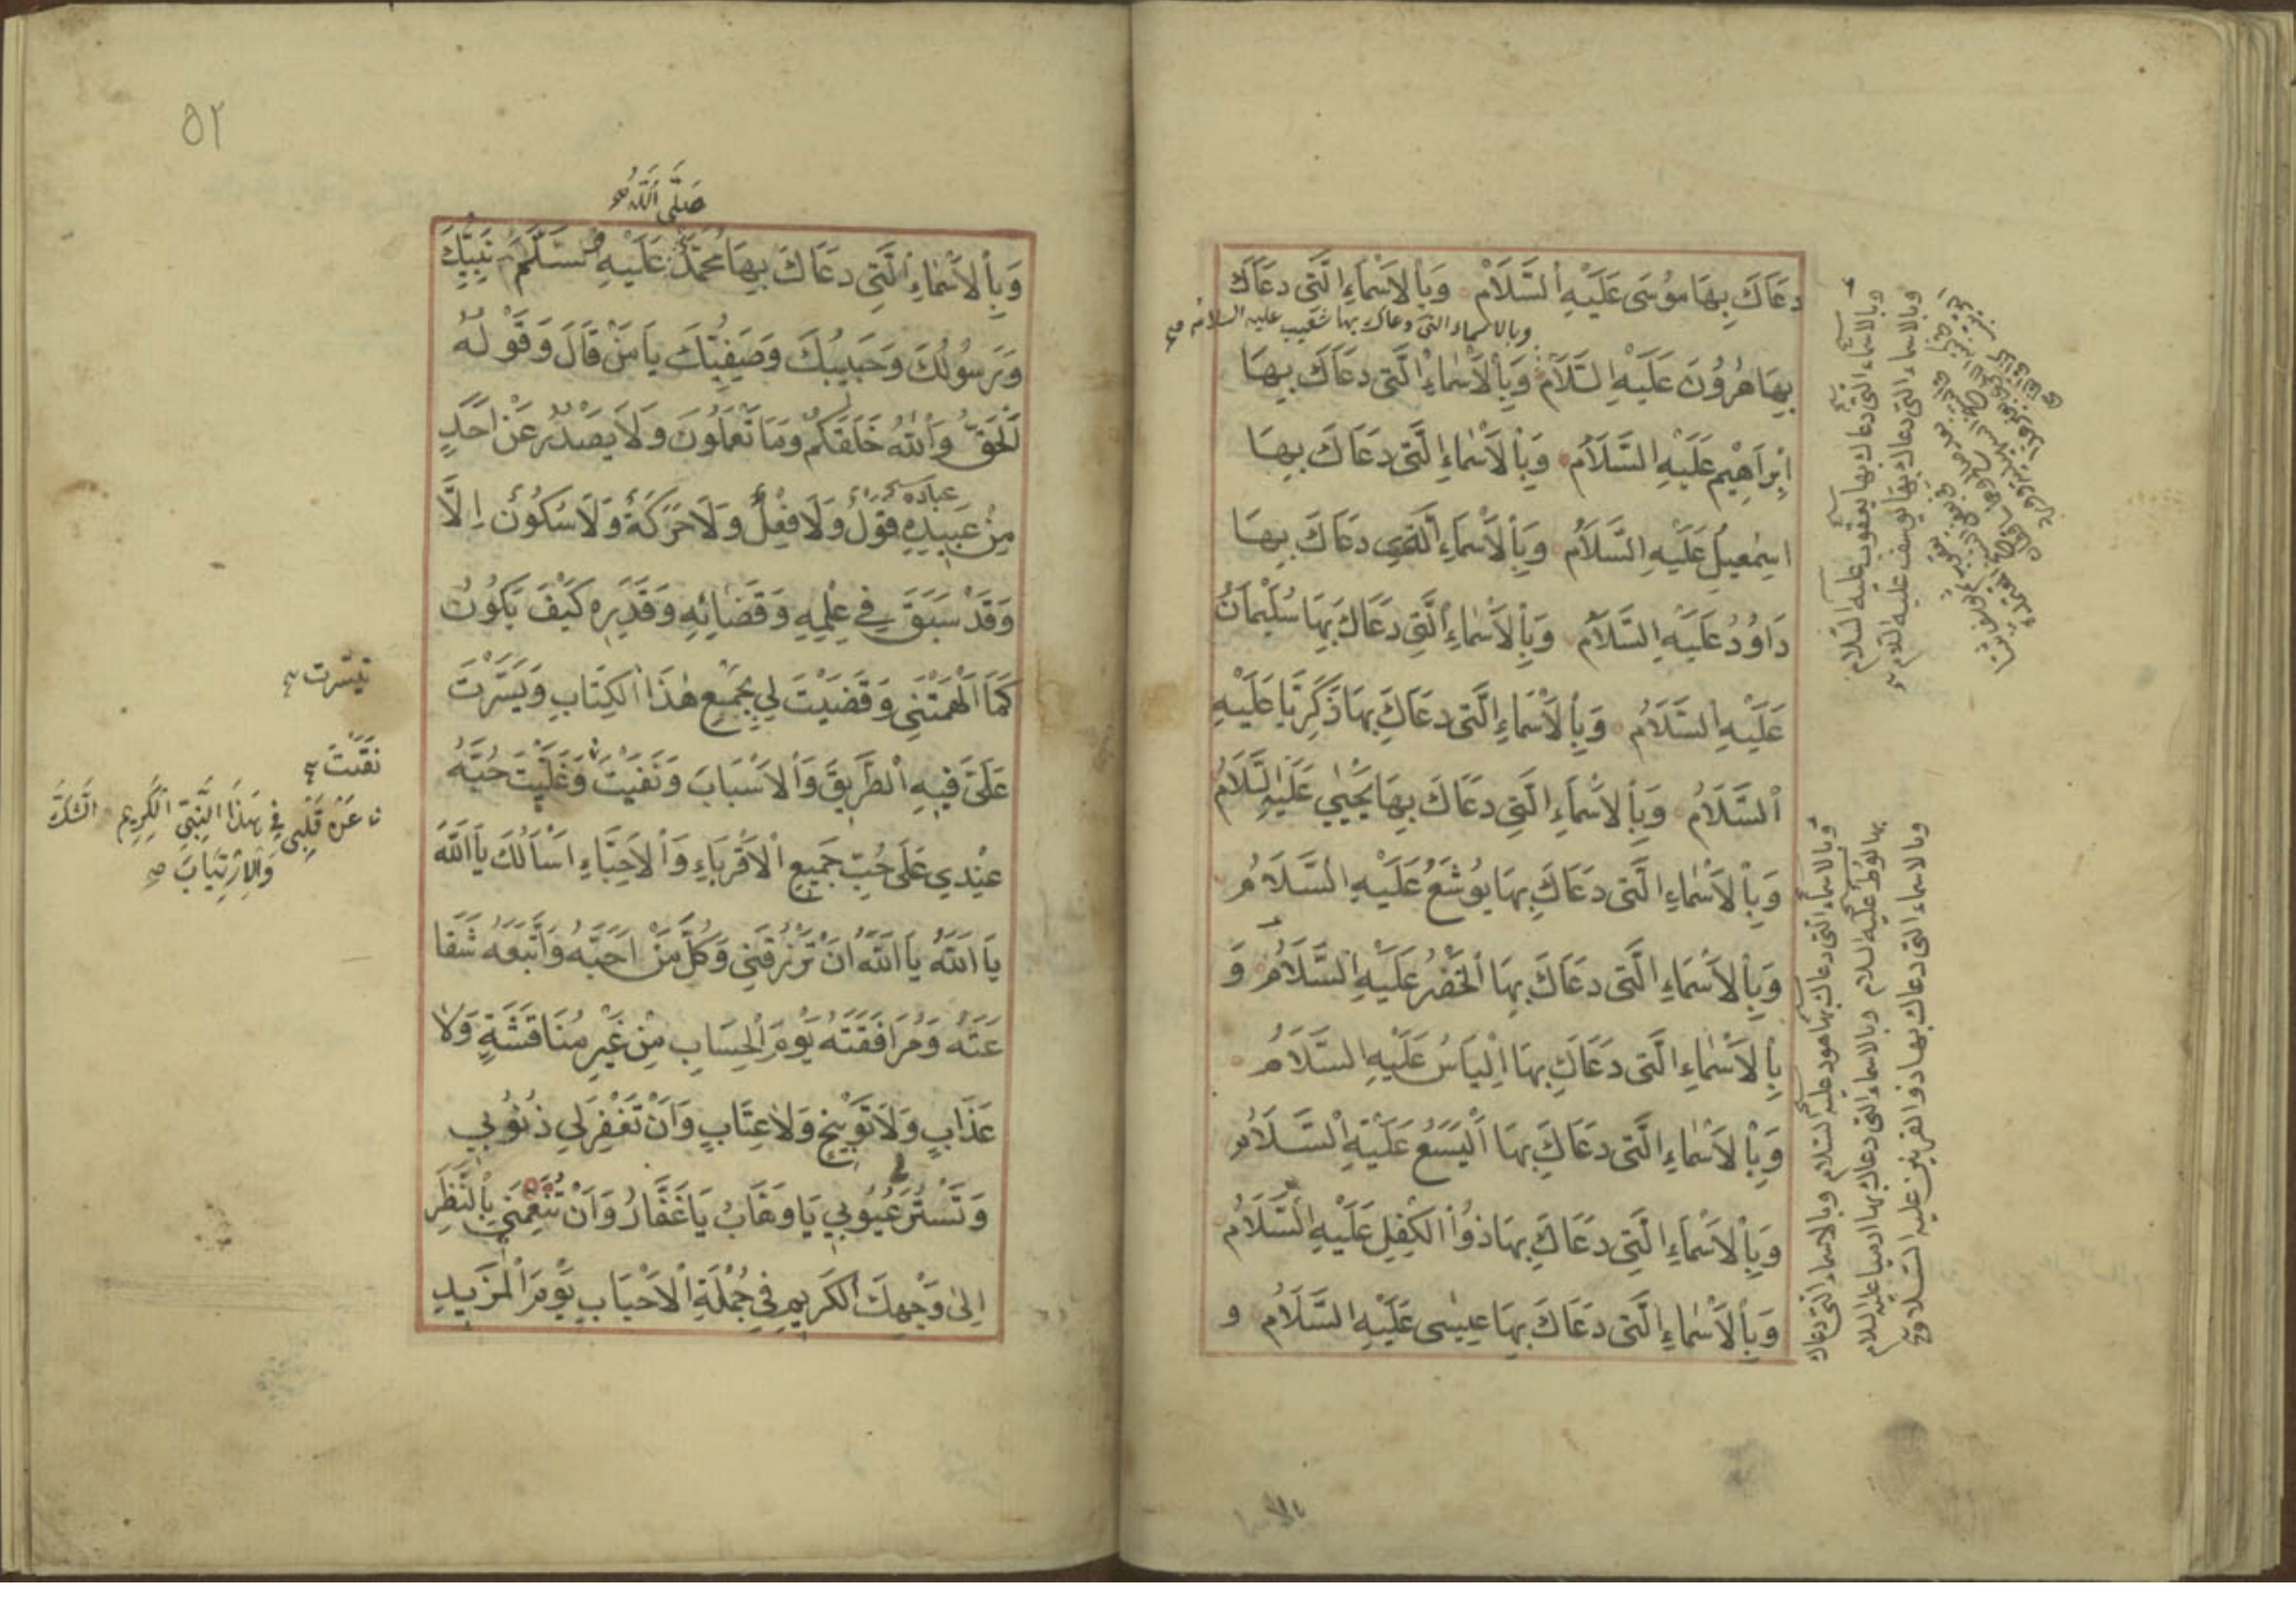 دعَاكَ بِهَا مُوسَى عَلَيْهِ السَّلَامُ وَبِالْأَسْمَاءِ الَّتِي دعَاكَ
وبالاسماء التى دعاك بها شعيب عليه السلام صح
بِهَا هٰرُونَ عَلَيْهِ السَّلَامُ وَبِالْأَسْمَاءِ الَّتِي دعَاكَ بِهَا
اِبْرَاهِيْم عَلَيْهِ السَّلَامُ وَبِالْأَسْمَاءِ الَّتِي دَعَاكَ بِهَا
اسِمْعِيلُ عَلَيْهِ السَّلَامُ وَبِالْأَسْمَاءِ الَّتِي دعَاكَ بِهَا
دَاوُدُ عَلَيْهِ السَّلَامُ وَبِالْأَسْمَاءِ الَّتِي دَعَاكَ بِهَا سُلَيْمَانُ
عَلَيْهِ السَّلَامُ وَبِالْأَسْمَاءِ الَّتِي دعَاكَ بِهَا زَكَرِيَّا عَلَيْهِ
السَّلَامُ وَبِالْأَسْمَاءِ الَّتِي دعَاكَ بِهَا يَحْيٰي عَلَيْهِ السَّلَامُ
وَبِالْأَسْمَاءِ الَّتِي دَعَاكَ بِهَا يُوشَعُ عَلَيْهِ السَّلَامُ
وَبِالْأَسْمَاءِ الَّتِي دعَاكَ بِهَا الْخَضِرُ عَلَيْهِ السَّلَامُ وَ
بِالْأَسْمَاءِ الَّتِي دَعَاكَ بِهَا اِلْيَاسُ عَلَيْهِ السَّلَامُ
وَبِالْأَسْمَاءِ الَّتِي دَعَاكَ بِهَا الْيَسَعُ عَلَيْهِ السَّلَامُ
وَبِالْأَسْمَاءِ الَّتِي دَعَاكَ بِهَا ذُوا الْكِفْلِ عَلَيْهِ السَّلَامُ
وَبِالْأَسْمَاءِ الَّتِي دَعَاكَ بِهَا عِيسٰى عَلَيْهِ السَّلَامُ و
وبالاسماء التى دعاك بها يعقوب عليه السلام
وبالاسماء التى دعاك بها يوسف عليه السلام
وبالاسماء التى دعاك بها هود عليه السلام وبالاسماء التى دعاك
بها لوط عليه السلام وبالاسماء التى دعاك بها ارميا عليه السلام
وبالاسماء التى دعاك بها ذو القرنين عليه السلام صح
بالاسما
٥٢
صَلَّى اللهُ صح
وَبِالْأَسْمَاءِ الَّتِي دعَاكَ بِهَا مُحَمَّدٌ عَلَيْهِ وَسَلَّمَ نَبِيُّكَ
وَرَسُولُكَ وَحَبِيبُكَ وَصَفِيُّكَ يَا مَنْ قَالَ وَقَوْلُهُ
الْحَقُّ وَاللهُ خَلَقَكُمْ وَمَا تَعْمَلُونَ وَلَا يَصْدُرُ عَنْ اَحَدٍ
عباده
مِنْ عَبِيدِهِ قَوْلٌ وَلَا فِعْلٌ وَلَا حَرَكَةٌ وَلَا سُكُونٌ اِلَّا
وَقَدْ سَبَقَ فِي عِلْمِهِ وَقَضَائِهِ وَقَدَرِهِ كَيْفَ يَكُونُ
كَمَا اَلْهَمْتَنِي وَقَضَيْتَ لِي بِجَمْعِ هٰذَا الْكِتَابِ وَيَسَّرْتَ
عَلَيَّ فِيهِ الطَّرِيقَ وَالْأَسْبَابَ وَنَفَيْتَ وَغَلَّبْتَ حُبَّهُ
عِنْدِي عَلَى حُبِّ جَمِيعِ الْأَقْرِبَاءِ وَالْأَحِبَّاءِ اَسْأَلُكَ يَا اَللهُ
يَا اَللهُ يَا اَللهُ اَنْ تَرْزُقَنِي وَكُلَّ مَنْ اَحَبَّهُ وَاتَّبَعَهُ شَفَا
عَتَهُ وَمُرَافَقَتَهُ يَوْمَ الْحِسَابِ مِنْ غَيْرِ مُنَاقَشَةٍ وَلَا
عَذَابٍ وَلَا تَوْبِيخٍ وَلَا عِتَابٍ وَاَنْ تَغْفِرَ لِي ذُنُوبِي
وَتَسْتُرَ عُيُوبِي يَا وَهَّابُ يَا غَفَّارُ وَاَنْ تُنَعِّمَنِي بِالنَّظَرِ
اِلٰى وَجْهِكَ الْكَرِيمِ فِي جُمْلَةِ الْأَحْبَابِ يَوْمَ الْمَزِيدِ
تيسرت
عَنْ قَلْبِي فِي هٰذَا النَّبِيِّ الْكَرِيمِ الشَّكَّ
وَالْاِرْتِيَابَ صح